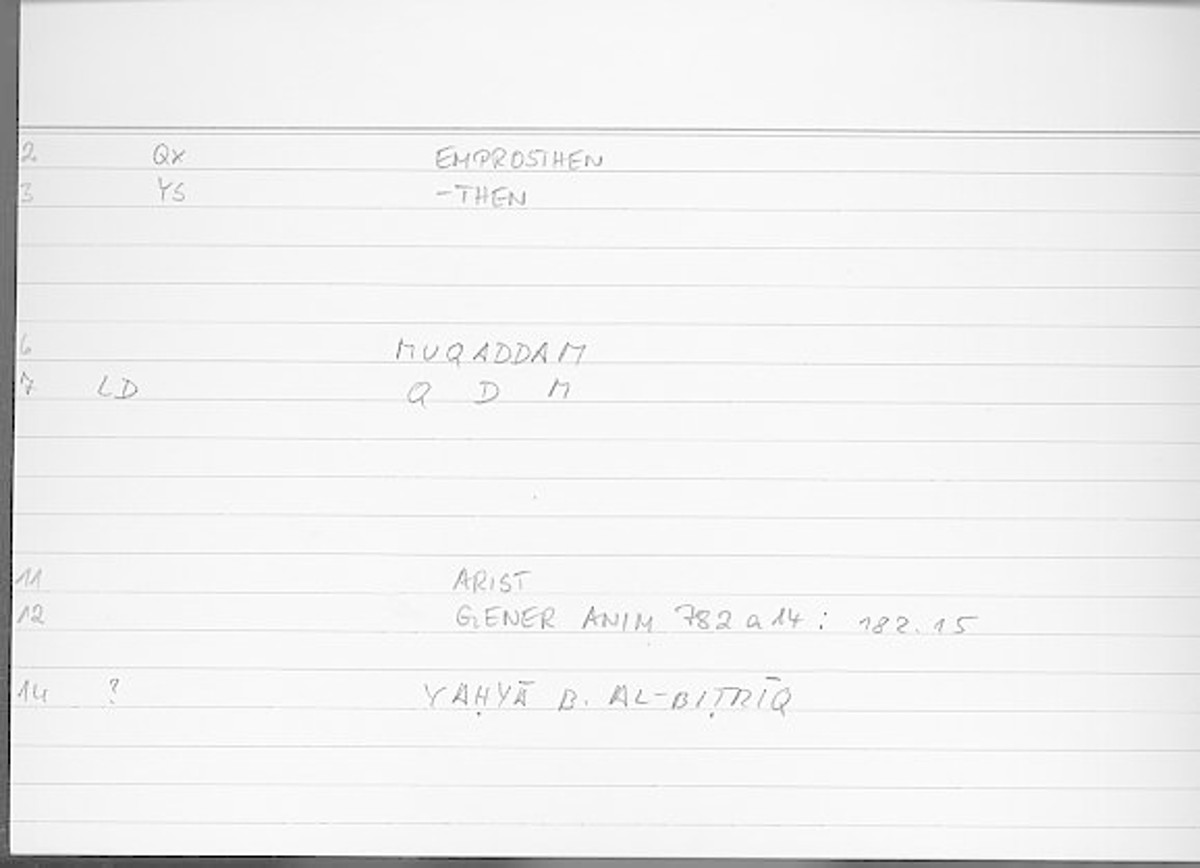 2 Qx EMPROSTHEN
3 YS -THEN
6 MUQADDAM
7 LD Q D M
11 ARIST
12 GENER ANIM 782 a 14 : 182.15
14 ? YAḤYĀ B. AL-BIṬRĪQ